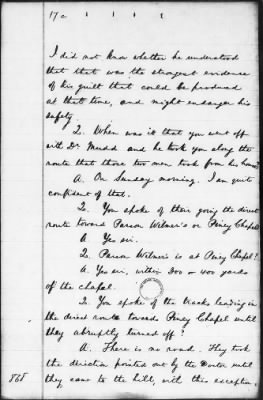 17c
I did not know whether he understood
that that was the strongest evidence
of his guilt that could be produced
at that time, and might endanger his
safety.
Q. When was it that you went off
with Dr. Mudd and he took you along the
route that those two men took from his house?
A. On Sunday morning. I am quite
confident of that.
Q. You spoke of their going the direct
route toward Parson Wilmer's or Piney Chapel?
A. Yes sir.
Q. Parson Wilmer's is at Piney Chapel?
A. Yes sir, within 300 or 400 yards
of the chapel.
Q. You spoke of the tracks leading in
the direct route towards Piney Chapel until
they abruptly turned off?
A. There is no road. They took
the direction pointed out by the Doctor until
they came to the hill, with this exception,
868